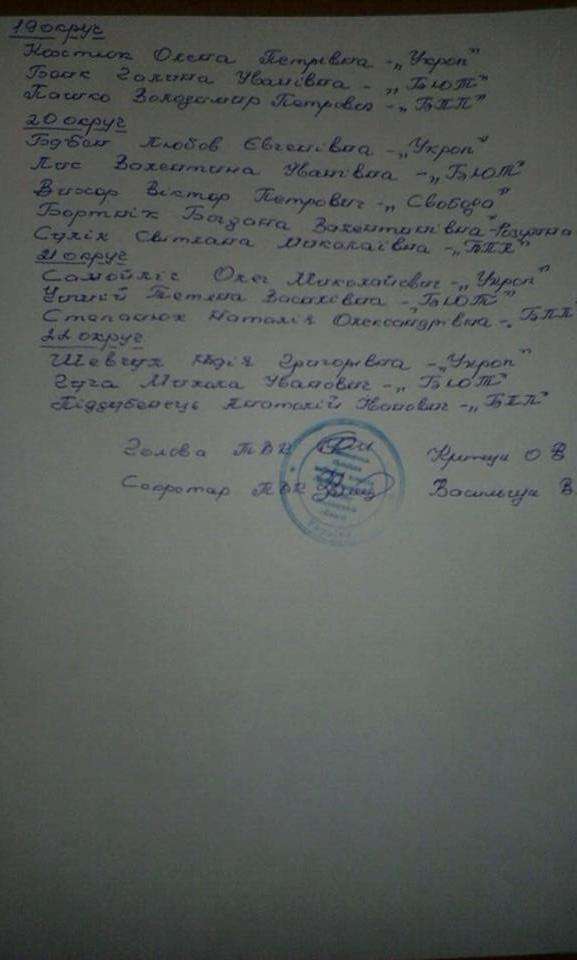 19 округ
Костюк Олена Петрівна - „Укроп"
Боик Галина Іванівна - „БЮТ"
Пашко Володимир Петрович - „БПП"
20 округ
Любов Євгенівна - „Укроп"
Лис Валентина Іванівна - „БЮТ"
Вихор Віктор Петрович - „Свобода"
Бортнік Богдана Валентинівна
Сулік Світлана Миколаївна - „БПП"
21 округ
Олег Миколайович - „Укроп"
Василівна - „БЮТ"
Степанюк Наталія Олександрівна - „БПП
22 округ
Шевчук Надія Григорівна - „Укроп"
Гуга Микола Іванович - „БЮТ"
Піддубенець Анатолій Іванович - „БПП"
Голова ТВК О В
Секретар ТВК В
Україна